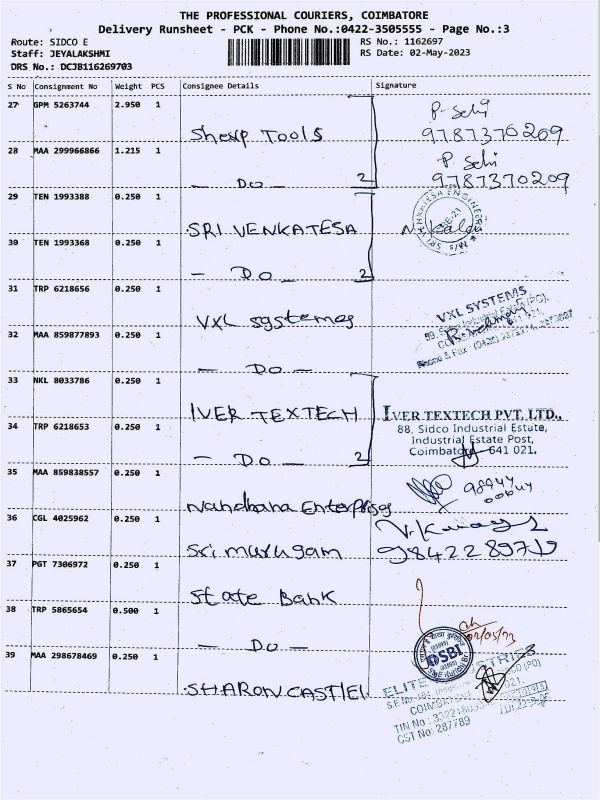 THE PROFESSIONAL COURIERS, COIMBATORE
Delivery Runsheet - PCK - Phone No.:0422-3505555 - Page No.:3
Route: SIDCO E
RS No.: 1162697
Staff: JEYALAKSHMI
RS Date: 02-May-2023
DRS No.: DCJB116269703
S No Consignment No Weight PCS Consignee Details Signature
27 GPM 5263744 2.950 1
Sharp Tools
9787370209
28 MAA 299966866 1.215 1
- Do - 2
9787370209
29 TEN 1993388 0.250 1
SRI VENKATESA
30 TEN 1993368 0.250 1
- Do - 2
31 TRP 6218656 0.250 1
VXL systemes
VXL SYSTEMS
32 MAA 859877893 0.250 1
- Do -
33 NKL 8033786 0.250 1
IVER TEXTECH
IVER TEXTECH PVT. LTD.,
88, Sidco Industrial Estate,
Industrial Estate Post,
Coimbatore - 641 021.
34 TRP 6218653 0.250 1
- Do - 2
35 MAA 859838557 0.250 1
Nandhana Enterprises
36 CGL 4025962 0.250 1
Sri murugam
37 PGT 7306972 0.250 1
State Bank
38 TRP 5865654 0.500 1
- Do -
02/05/23
SBI
39 MAA 298678469 0.250 1
SHARON CASTIEL
CST No: 287789